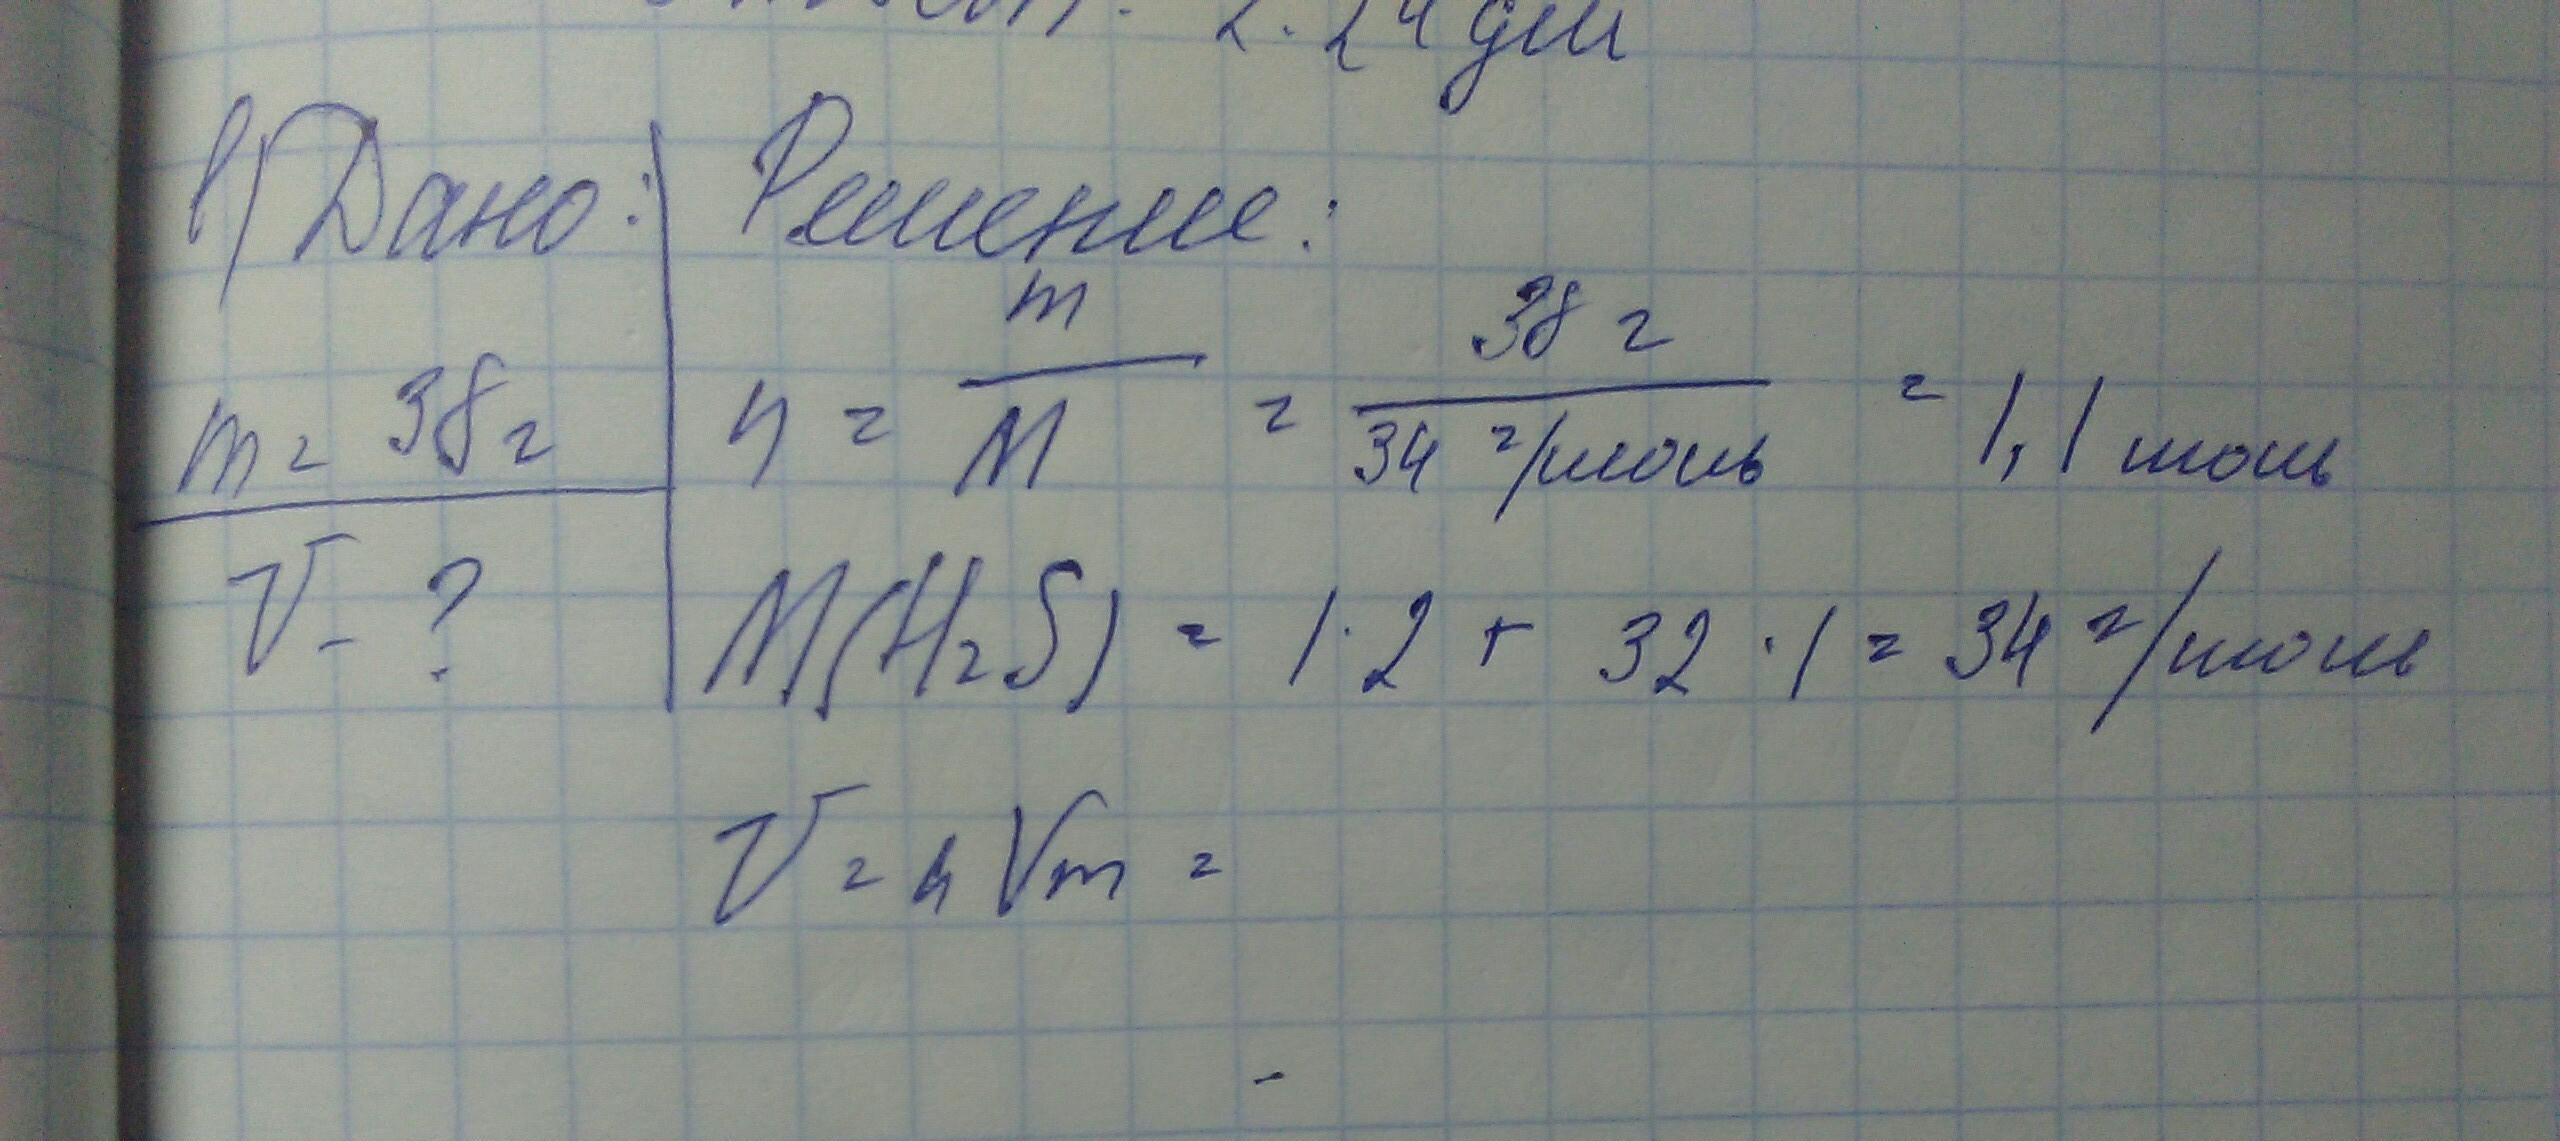 2.24 дм
в) Дано:
Решение:
m = 38 г
n = m/M = 38 г / 34 г/моль = 1,1 моль
V - ?
M(H₂S) = 1·2 + 32·1 = 34 г/моль
V = n Vm =